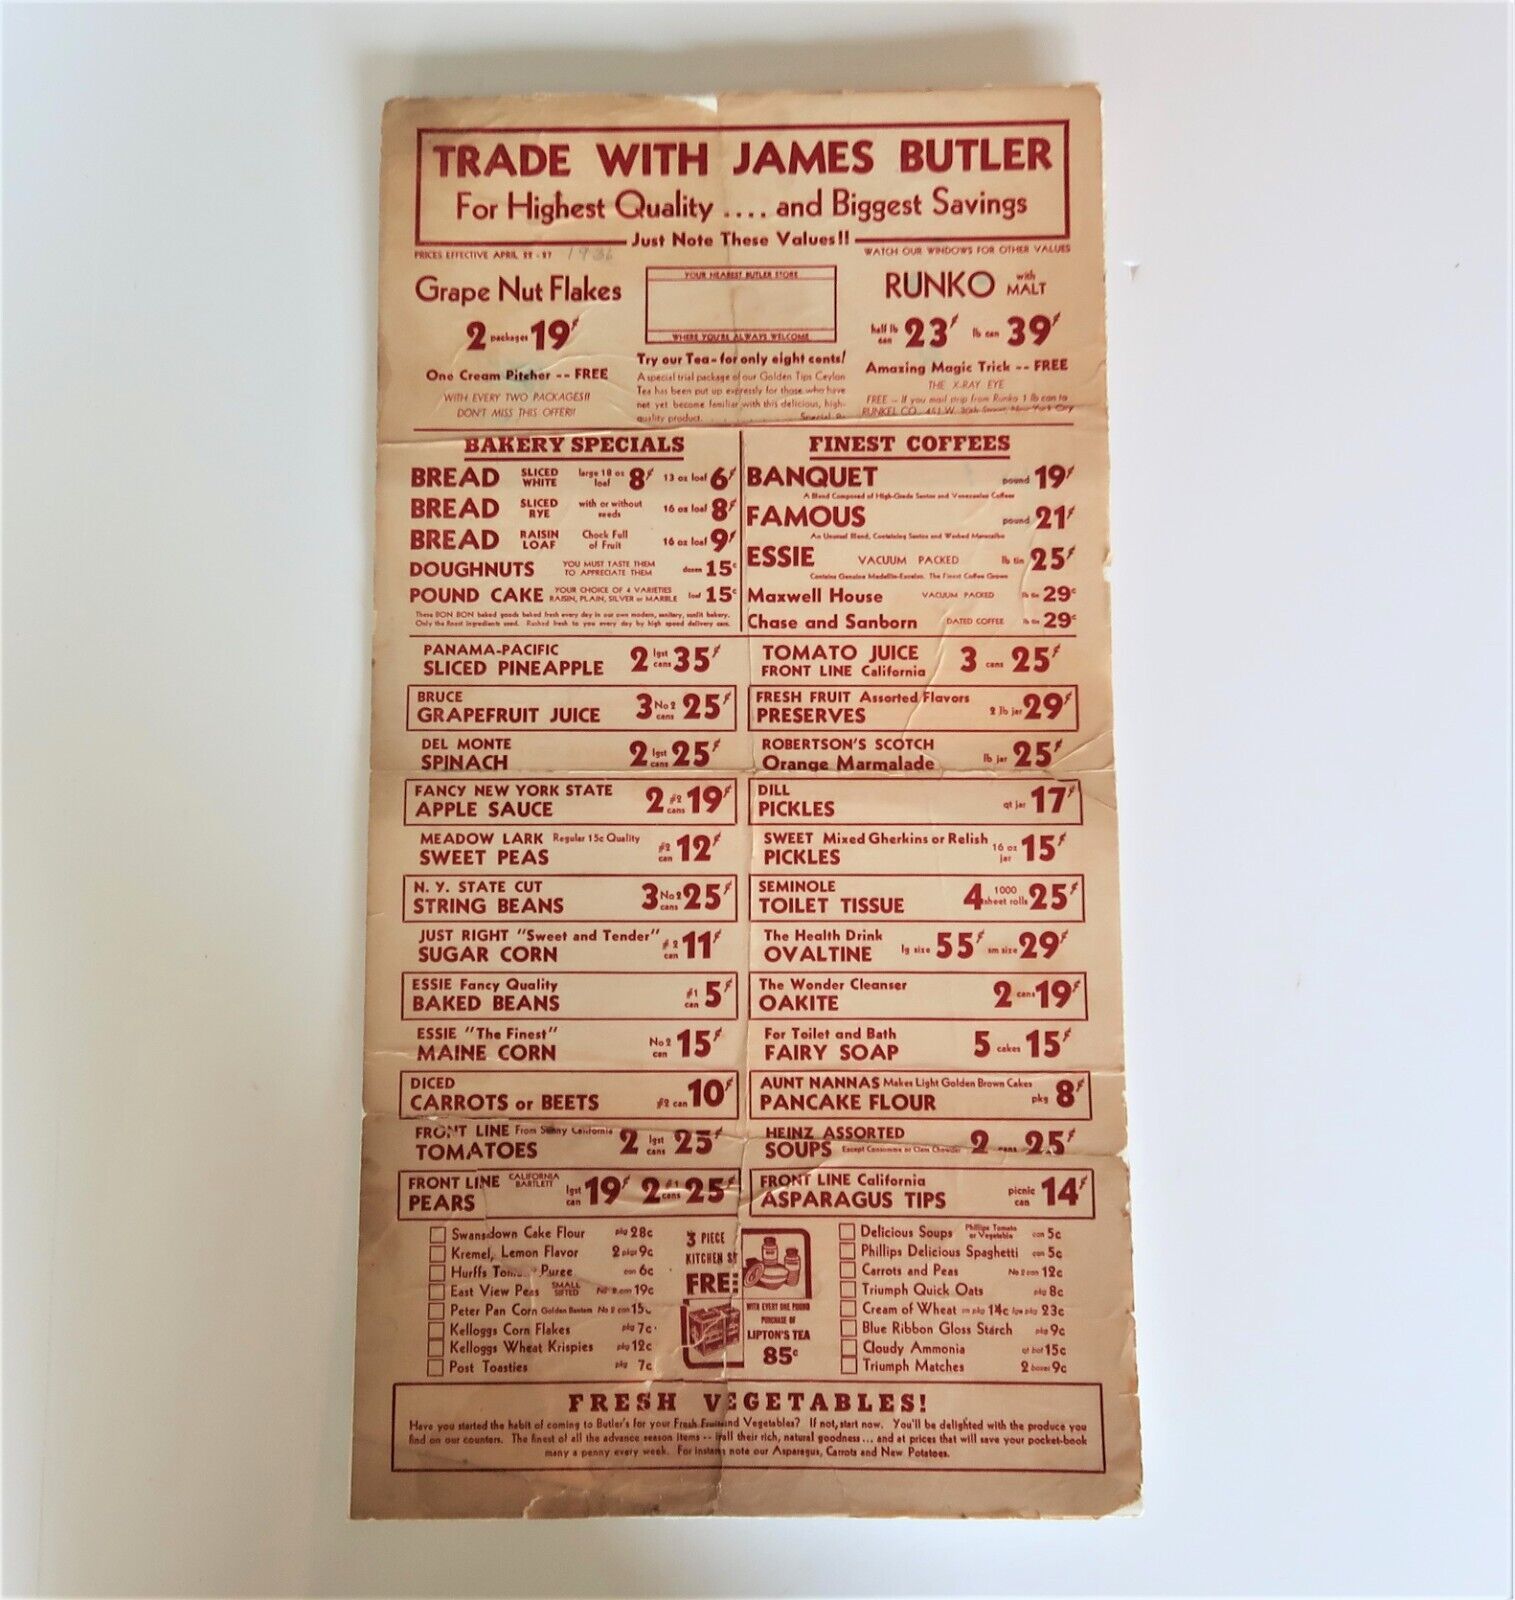 TRADE WITH JAMES BUTLER
For Highest Quality .... and Biggest Savings
Just Note These Values!!
PRICES EFFECTIVE APRIL 22 - 27 1936
WATCH OUR WINDOWS FOR OTHER VALUES
Grape Nut Flakes
2 packages 19¢
One Cream Pitcher -- FREE
WITH EVERY TWO PACKAGES!!
DON'T MISS THIS OFFER!!
YOUR NEAREST BUTLER STORE
WHERE YOU'RE ALWAYS WELCOME
Try our Tea - for only eight cents!
A special trial package of our Golden Tips Ceylon
Tea has been put up expressly for those who have
not yet become familiar with this delicious, high-
quality product. Special
RUNKO with MALT
half lb can 23¢ lb can 39¢
Amazing Magic Trick -- FREE
THE X-RAY EYE
FREE -- If you mail strip from Runko 1 lb can to
RUNKEL CO. 451 W. 30th Street, New York City
BAKERY SPECIALS
BREAD SLICED WHITE large 18 oz loaf 8¢ 13 oz loaf 6¢
BREAD SLICED RYE with or without seeds 16 oz loaf 8¢
BREAD RAISIN LOAF Chock Full of Fruit 16 oz loaf 9¢
DOUGHNUTS YOU MUST TASTE THEM TO APPRECIATE THEM dozen 15c
POUND CAKE YOUR CHOICE OF 4 VARIETIES RAISIN, PLAIN, SILVER or MARBLE loaf 15c
These BON BON baked goods baked fresh every day in our own modern, sanitary, sunlit bakery.
Only the finest ingredients used. Rushed fresh to you every day by high speed delivery cars.
FINEST COFFEES
BANQUET pound 19¢
A Blend Composed of High-Grade Santos and Venezuelan Coffees
FAMOUS pound 21¢
An Unusual Blend, Containing Santos and Washed Maracaibo
ESSIE VACUUM PACKED lb tin 25¢
Contains Genuine Medellin-Excelso. The Finest Coffee Grown
Maxwell House VACUUM PACKED lb tin 29c
Chase and Sanborn DATED COFFEE lb tin 29c
PANAMA-PACIFIC
SLICED PINEAPPLE 2 lgst cans 35¢
BRUCE
GRAPEFRUIT JUICE 3 No 2 cans 25¢
DEL MONTE
SPINACH 2 lgst cans 25¢
FANCY NEW YORK STATE
APPLE SAUCE 2 #2 cans 19¢
MEADOW LARK Regular 15c Quality
SWEET PEAS #2 can 12¢
N. Y. STATE CUT
STRING BEANS 3 No 2 cans 25¢
JUST RIGHT "Sweet and Tender"
SUGAR CORN #2 can 11¢
ESSIE Fancy Quality
BAKED BEANS #1 can 5¢
ESSIE "The Finest"
MAINE CORN No 2 can 15¢
DICED
CARROTS or BEETS #2 can 10¢
FRONT LINE From Sunny California
TOMATOES 2 lgst cans 25¢
FRONT LINE CALIFORNIA BARTLETT
PEARS lgst can 19¢ 2 #1 cans 25¢
TOMATO JUICE
FRONT LINE California 3 cans 25¢
FRESH FRUIT Assorted Flavors
PRESERVES 2 lb jar 29¢
ROBERTSON'S SCOTCH
Orange Marmalade lb jar 25¢
DILL
PICKLES qt jar 17¢
SWEET Mixed Gherkins or Relish
PICKLES 16 oz jar 15¢
SEMINOLE
TOILET TISSUE 4 1000 sheet rolls 25¢
The Health Drink
OVALTINE lg size 55¢ sm size 29¢
The Wonder Cleanser
OAKITE 2 cans 19¢
For Toilet and Bath
FAIRY SOAP 5 cakes 15¢
AUNT NANNAS Makes Light Golden Brown Cakes
PANCAKE FLOUR pkg 8¢
HEINZ ASSORTED
SOUPS Except Consomme or Clam Chowder 2 cans 25¢
FRONT LINE California
ASPARAGUS TIPS picnic can 14¢
Swansdown Cake Flour pkg 28c
Kremel, Lemon Flavor 2 pkgs 9c
Hurffs Puree can 6c
East View Peas SMALL SIFTED No 2 can 19c
Peter Pan Corn Golden Bantam No 2 can 15c
Kelloggs Corn Flakes pkg 7c
Kelloggs Wheat Krispies pkg 12c
Post Toasties pkg 7c
3 PIECE
KITCHEN
FREE
WITH EVERY ONE POUND
PURCHASE OF
LIPTON'S TEA
85c
Delicious Soups Phillips Tomato or Vegetable can 5c
Phillips Delicious Spaghetti can 5c
Carrots and Peas No 2 can 12c
Triumph Quick Oats pkg 8c
Cream of Wheat sm pkg 14c lge pkg 23c
Blue Ribbon Gloss Starch pkg 9c
Cloudy Ammonia qt bot 15c
Triumph Matches 2 boxes 9c
FRESH VEGETABLES!
Have you started the habit of coming to Butler's for your Fresh Fruit and Vegetables? If not, start now. You'll be delighted with the produce you
find on our counters. The finest of all the advance season items -- all their rich, natural goodness ... and at prices that will save your pocket-book
many a penny every week. For instance note our Asparagus, Carrots and New Potatoes.